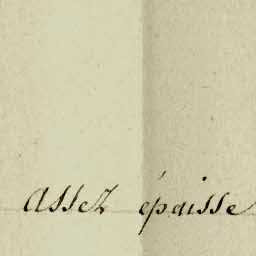 assez épaisse